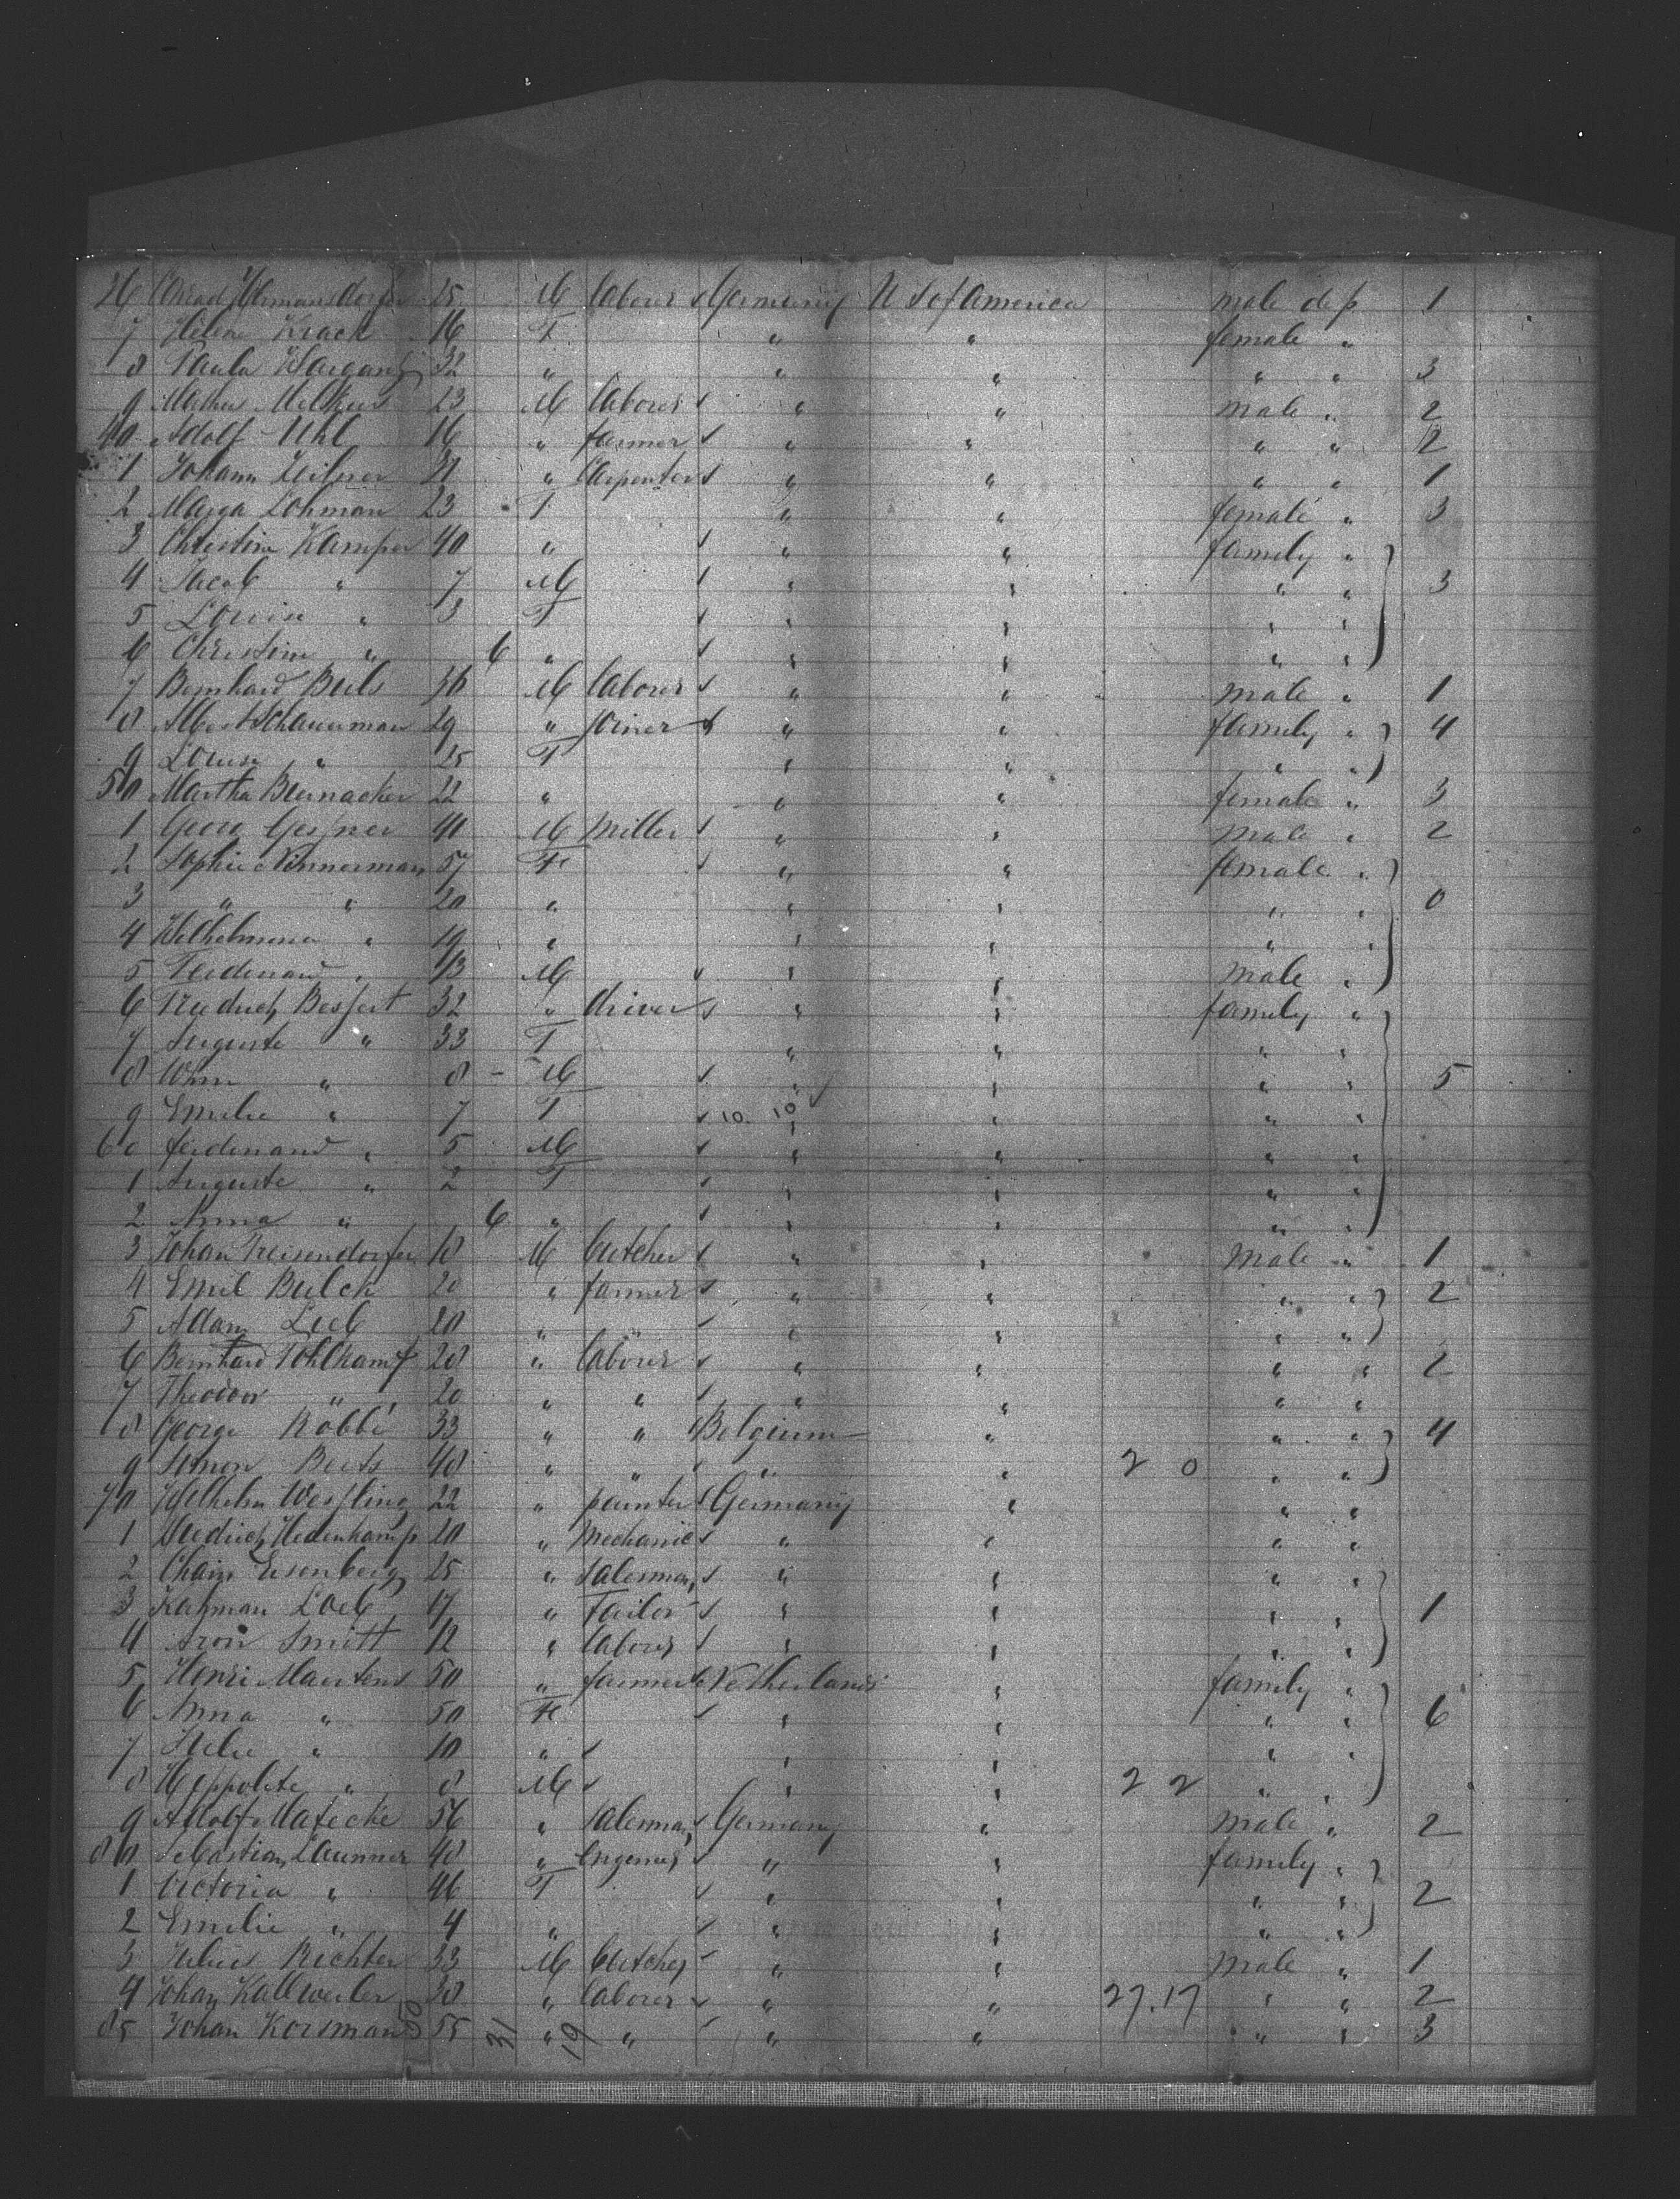 36 Conrad Hermansdorfer 25 M labourer Germany U S of America male dep 1
7 Helene Krack 16 F " " female "
8 Paula 32 " " " " " 3
9 23 M labourer " " male " 2
40 Adolf Uhl 16 " farmer " " " " 2
1 Johann 21 " Carpenter " " " " 1
2 Lohman 23 F " " female " 3
3 Christine Kamper 40 " " " family "
4 Jacob " 7 M " " " " 3
5 Louise " 3 F " " " "
6 Christine " 6 " " " " "
7 Bernhard 36 M labourer " " male " 1
8 Albert Schauerman 29 " joiner " " family " 4
9 Louise " 25 F " " " "
50 Martha 22 " " " female " 3
1 Georg Gessner 41 M Miller " " male " 2
2 Sophie 57 Fe " " female "
3 " " 20 " " " " " 0
4 Wilhelmina " 19 " " " " "
5 Ferdinand " M " " male "
6 Friedrich Bessert 32 " driver " " family "
7 Auguste " 33 F " " " "
8 Whm " 8 - M " " " " 5
9 Emilie " 7 F 10 10 " " " "
60 ferdinand " 5 M " " " "
1 Auguste " 2 F " " " "
2 Anna " 6 " " " " "
3 Johan 18 M butcher " " Male " 1
4 Emil 20 " farmer " " " " 2
5 Adam 20 " " " " " "
6 Bernhard Pohlkamp 28 " labourer " " " " 2
7 Theodor " 20 " " " " " "
8 George Robbé 33 " " Belgium " " " 4
9 Simon 48 " " " " 2 0 " "
70 Wilhelm Wessling 22 " painter Germany " " "
1 Diedrich 20 " Mechanic " " " "
2 Chaim Eisenberg 25 " Salesman " " " "
3 Kalman 17 " Tailor " " " " 1
4 Aron Smitt 12 " labourer " " " "
5 Henri Maertens 50 " farmer Netherlands " family "
6 Anna " 50 Fe " " " " 6
7 " 10 " " " " "
8 Hippolite " 8 M " " 2 2 " "
9 Adolf 56 " Salesman Germany " male " 2
80 Sebastian 48 " Engineer " " family "
1 Victoria " 46 F " " " " 2
2 Emilie " 4 " " " " "
3 Julius Richter 33 M butcher " " male " 1
4 Johan Kallweiler 30 " labourer " " 27.17 " " 2
85 Johan Korsman 55 " " " " " " 3
50 31 19